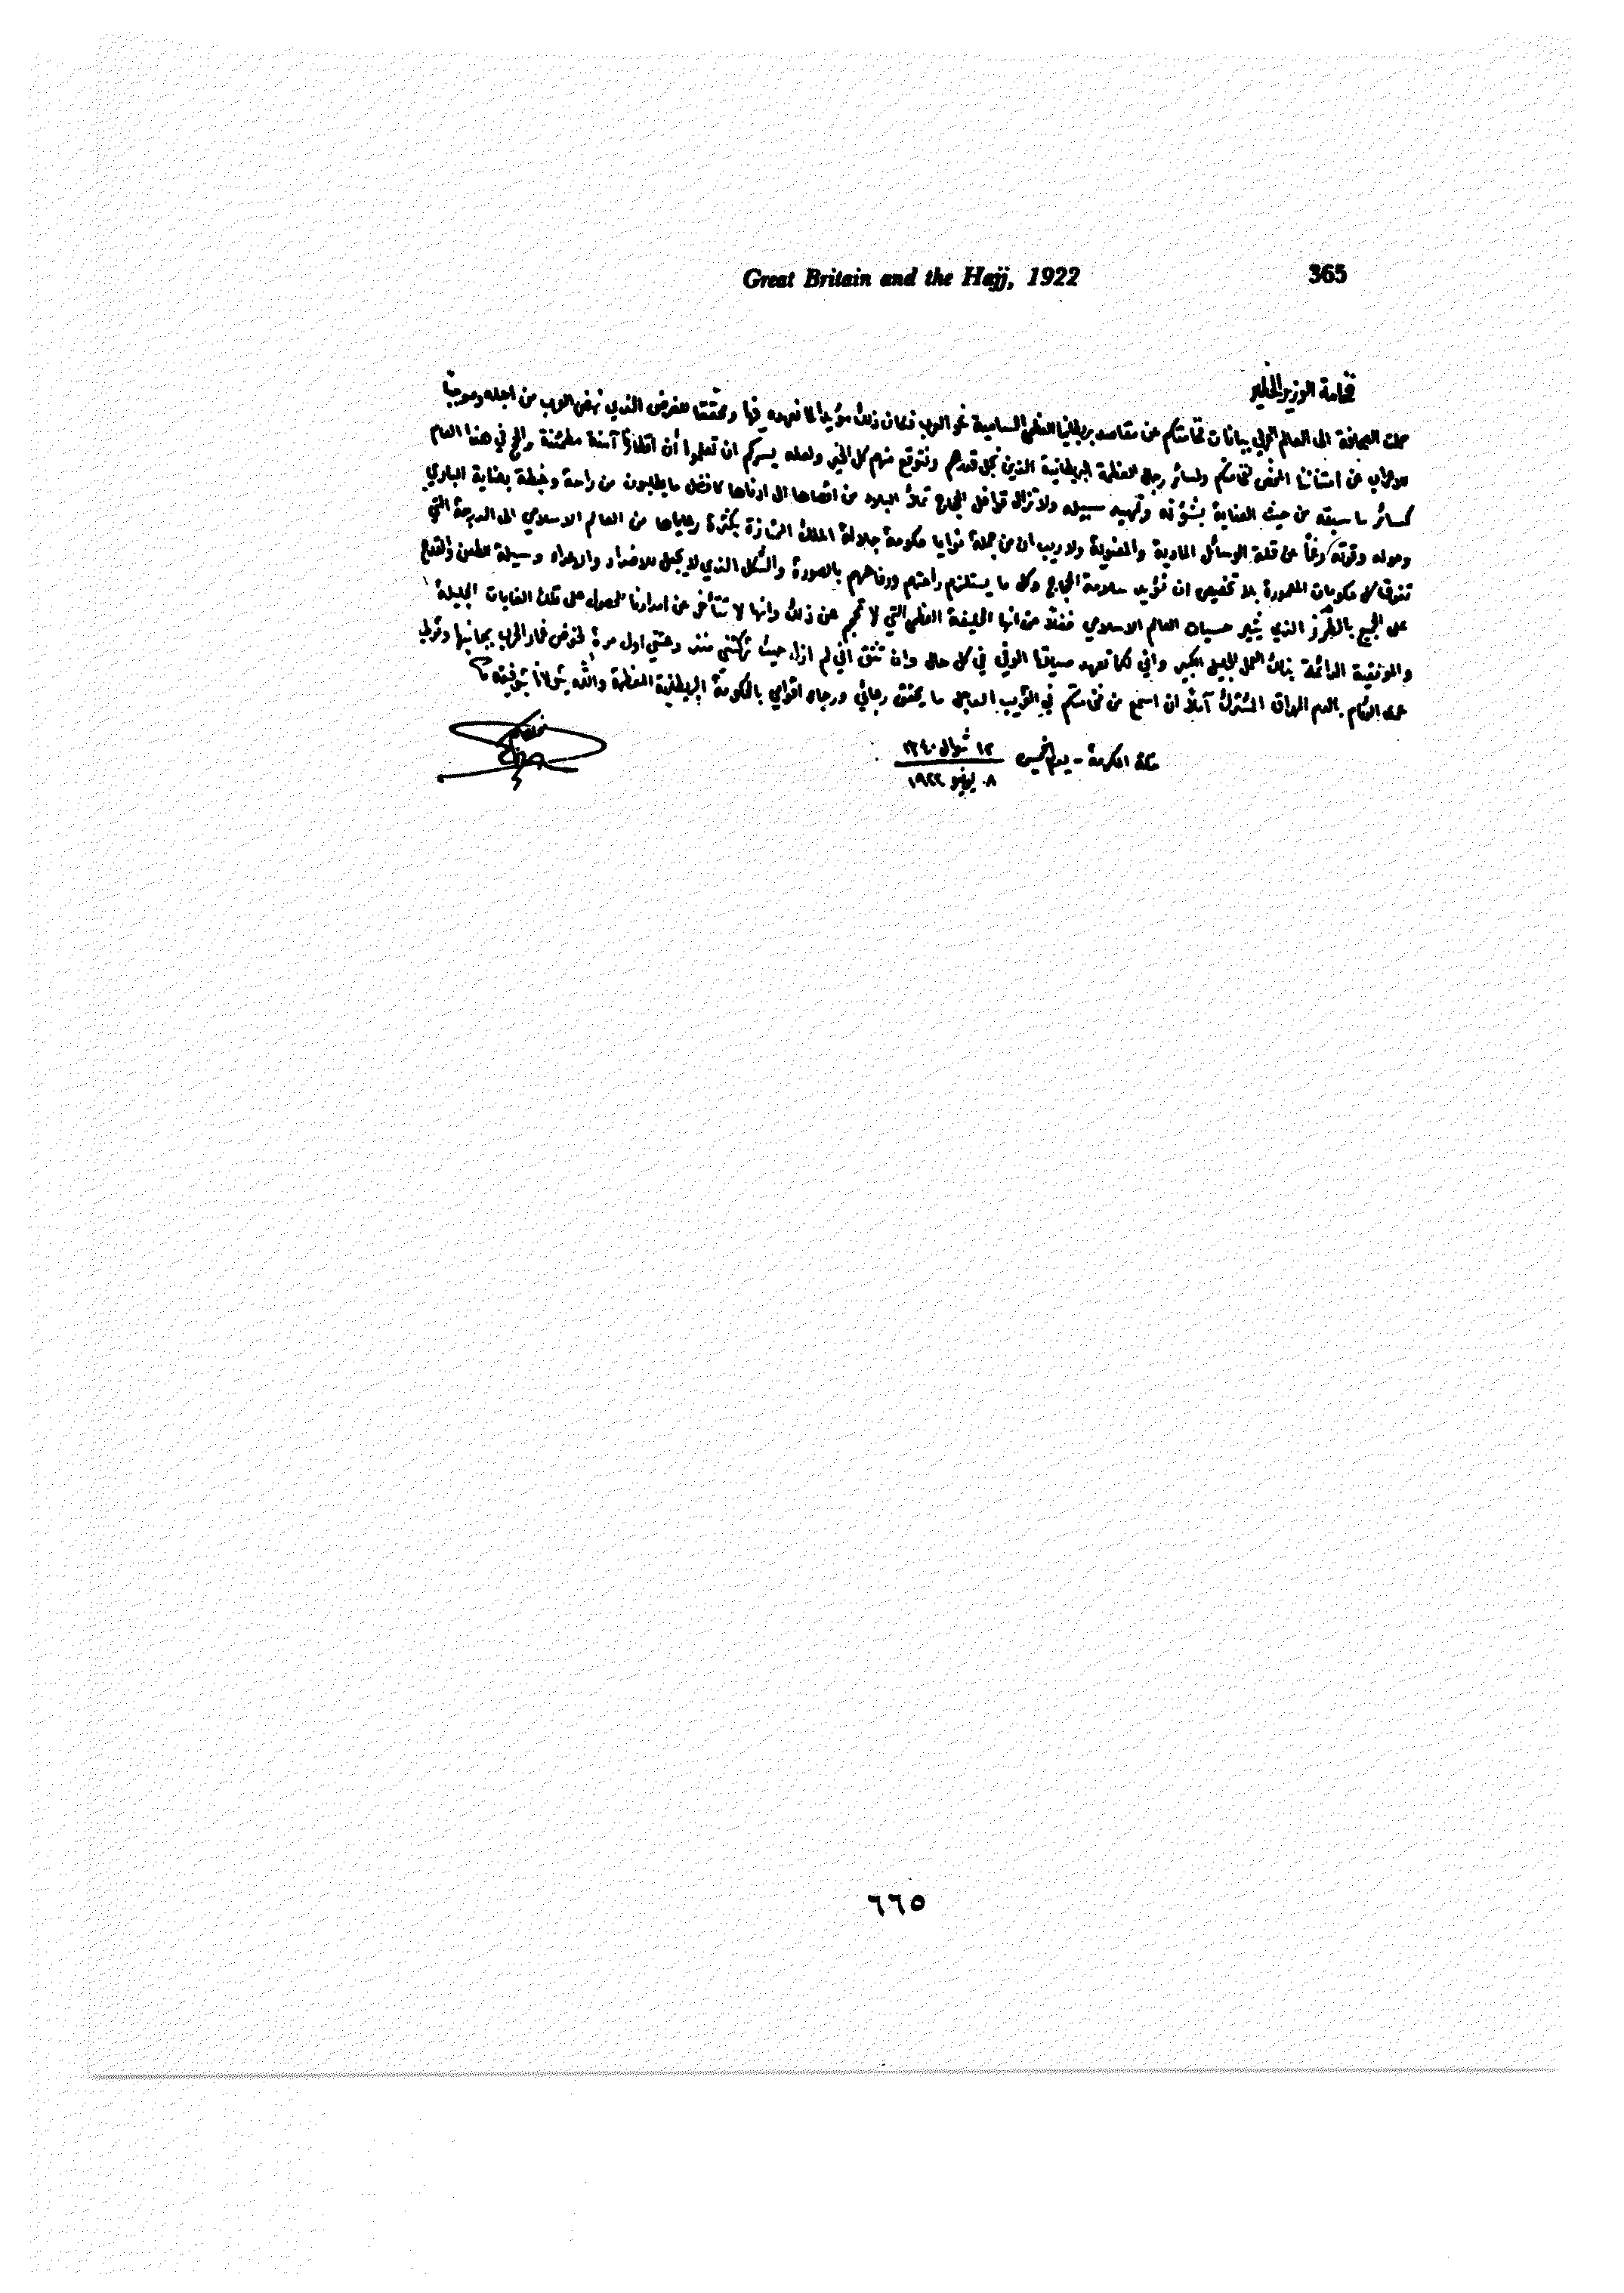 Great Britain and the Hajj, 1922 365
فخامة الوزير الخطير
حملت الصحافة الى العالم العربي بيانات فخامتكم عن مقاصد بريطانيا العظمى السامية نحو العرب فكان ذلك مؤيداً لما نعهده فيها ومحققا للغرض الذي نهض العرب من اجله وموجباً
للاعراب عن امتناننا المحض لفخامتكم ولسائر رجال العظمة البريطانية الذين نجل قدرهم ونتوقع منهم كل الخير ولعله يسركم ان تعلموا أن اقطارنا آمنة مطمئنة والحج في هذا العام
كسائر ما سبقه من حيث العناية بشؤنه وتمهيد سبيله ولا تزال قوافل الحجاج تملأ البلاد من اقصاها الى ادناها كافضل ما يطلبون من راحة وغبطة بعناية الباري
وحوله وقوته رغماً عن قلة الوسائل المادية والمعنوية ولا ريب ان من جملة نوايا حكومة جلالة الملك الممتازة بكثرة رعاياها من العالم الاسلامي الى الدرجة التي
تفوق كل حكومات المعمورة بلا تخصيص ان تؤيد سلامة الحجاج وكل ما يستلزم راحتهم ورفاههم بالصورة والشكل الذي لا يجعل للاضداد والاعداء وسيلة للطعن والقدح
على الجميع بالطرز الذي يثير حسيات العالم الاسلامي فضلا من انها الحليفة العظمى التي لا تحجم عن ذلك وانها لا تتأخر عن امدادنا للحصول على تلك الغايات الجليلة
والموفقية الدائمة بذلك العمل الجليل الكبير واني كما تعهد صديقنا الوفي في كل حال وان تثق اني لم ازل حيث تركتني منذ دعتني اول مرة لخوض غمار الحرب بجانبها وتولي
عرى الوئام بالدم المهراق المشترك آملا ان اسمع من فخامتكم في القريب العاجل ما يحقق رجائي ورجاء اقوامي بالحكومة البريطانية المعظمة والله يتولانا بتوفيقه
مكة المكرمة - يوم الخميس ١٢ شوال ١٣٤٠
٨ يونيو ١٩٢٢
٦٦٥